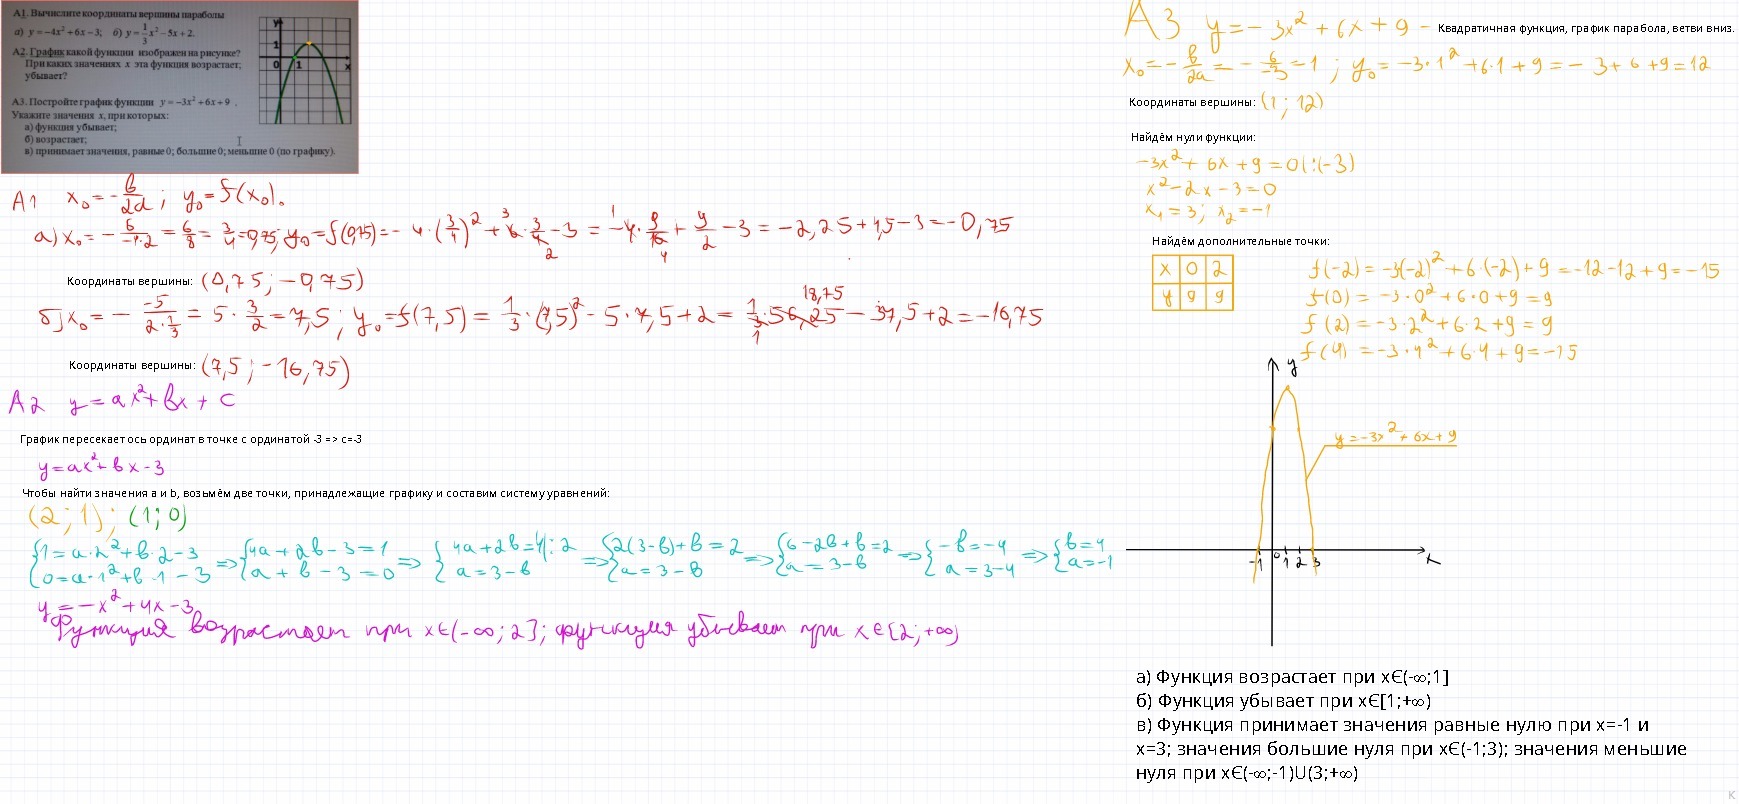 А1. Вычислите координаты вершины параболы
а) y = -4x² + 6x - 3; б) y = 1/3 x² - 5x + 2.
А2. График какой функции изображен на рисунке?
При каких значениях x эта функция возрастает;
убывает?
А3. Постройте график функции y = -3x² + 6x + 9 .
Укажите значения x, при которых:
а) функция убывает;
б) возрастает;
в) принимает значения, равные 0; больше 0; меньше 0 (по графику).
y
1
0 1 x
А1 x₀ = -в/2a ; y₀ = f(x₀).
а) x₀ = - 6/(-4·2) = 6/8 = 3/4 = 0,75; y₀ = f(0,75) = -4·(3/4)² + 6·3/4 - 3 = -4·9/16 + 9/2 - 3 = -2,25 + 4,5 - 3 = -0,75
Координаты вершины: (0,75 ; -0,75)
б) x₀ = - -5/(2·1/3) = 5·3/2 = 7,5 ; y₀ = f(7,5) = 1/3·(7,5)² - 5·7,5 + 2 = 1/3·56,25 - 37,5 + 2 = -16,75
Координаты вершины: (7,5 ; -16,75)
А2 y = ax² + вx + c
График пересекает ось ординат в точке с ординатой -3 => c=-3
y = ax² + вx - 3
Чтобы найти значения a и b, возьмём две точки, принадлежащие графику и составим систему уравнений:
(2 ; 1) ; (1 ; 0)
{1 = a·2² + в·2 - 3 => {4a + 2в - 3 = 1 => {4a + 2в = 4 |:2 => {2(3-в) + в = 2 => {6 - 2в + в = 2 => {-в = -4 => {в = 4
{0 = a·1² + в·1 - 3 {a + в - 3 = 0 {a = 3 - в {a = 3 - в {a = 3 - в {a = 3 - 4 {a = -1
y = -x² + 4x - 3
Функция возрастает при xϵ(-∞; 2]; функция убывает при xϵ[2; +∞)
А3 y = -3x² + 6x + 9 - Квадратичная функция, график парабола, ветви вниз.
x₀ = -в/2a = - 6/-3 = 1 ; y₀ = -3·1² + 6·1 + 9 = -3 + 6 + 9 = 12
Координаты вершины: (1 ; 12)
Найдём нули функции:
-3x² + 6x + 9 = 0 |:(-3)
x² - 2x - 3 = 0
x₁ = 3 ; x₂ = -1
Найдём дополнительные точки:
x 0 2
y 9 9
f(-2) = -3(-2)² + 6·(-2) + 9 = -12 - 12 + 9 = -15
f(0) = -3·0² + 6·0 + 9 = 9
f(2) = -3·2² + 6·2 + 9 = 9
f(4) = -3·4² + 6·4 + 9 = -15
y
y = -3x² + 6x + 9
-1 0 1 2 3 x
а) Функция возрастает при xЄ(-∞;1]
б) Функция убывает при xЄ[1;+∞)
в) Функция принимает значения равные нулю при x=-1 и
x=3; значения большие нуля при xЄ(-1;3); значения меньшие
нуля при xЄ(-∞;-1)U(3;+∞)
K